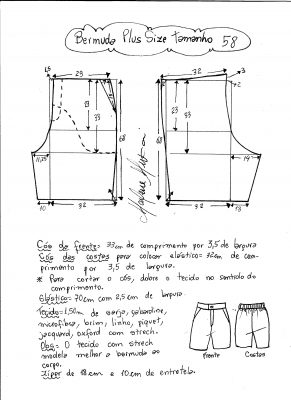 Bermuda Plus Size tamanho 58
1,5
23
32
3
2
23
23
33
33
68
68
11,25
19
10
32
32
13
Cós da frente: 33cm de comprimento por 3,5 de largura
Cós das costas para colocar elástico: 32cm de com-
primento por 3,5 de largura.
* Para cortar o cós, dobre o tecido no sentido do
comprimento.
Elástico: 70cm com 2,5cm de largura
Tecido: 1,50m de sarja, gabardine,
microfibra, brim, linho, piquet,
jacquard, oxford com strech.
Obs: O tecido com strech
modela melhor a bermuda ao
corpo.
Zíper de 18cm e 10cm de entretela.
Frente
Costas